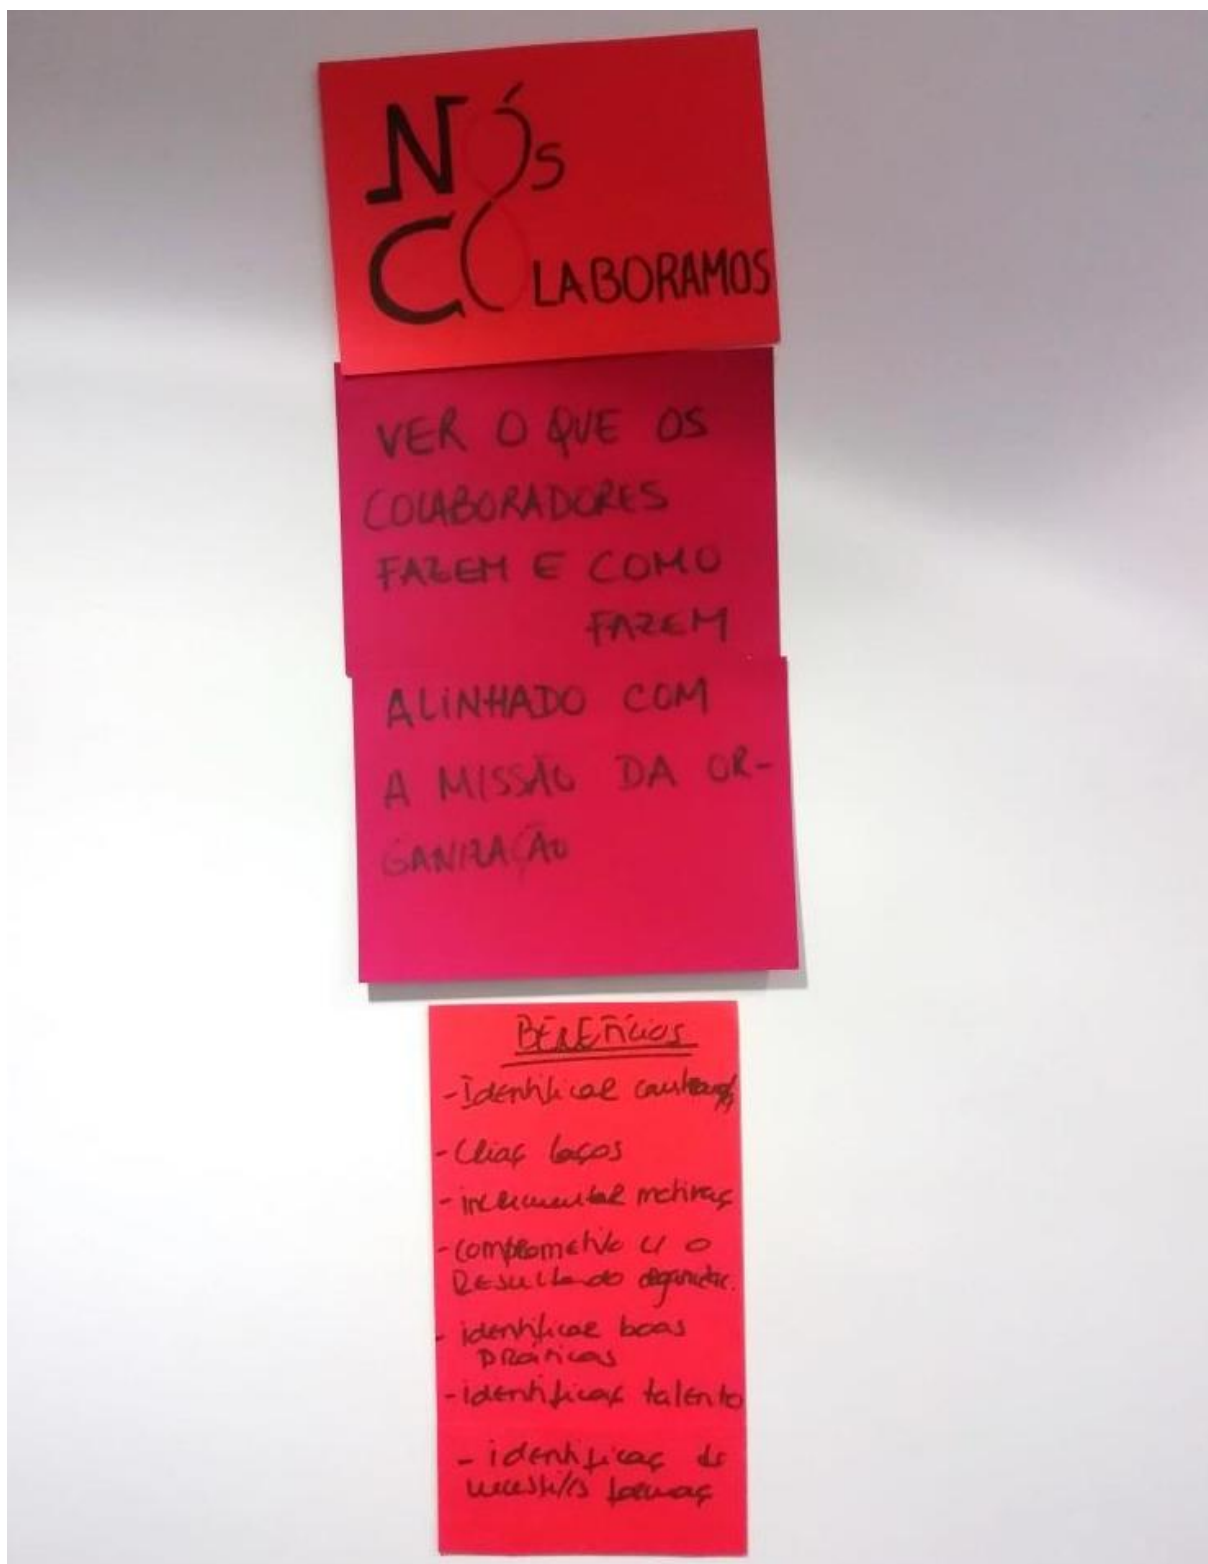 NÓS
COLABORAMOS
VER O QUE OS
COLABORADORES
FAZEM E COMO
FAZEM
ALINHADO COM
A MISSÃO DA OR-
GANIZAÇÃO
BENEFÍCIOS
- Identificar
- Criaç laços
- incrementar motivaç
- comprometi/o c/ o
Resultado organizac.
- identificar boas
práticas
- identificaç talento
- identificaç de
necessi/s formaç